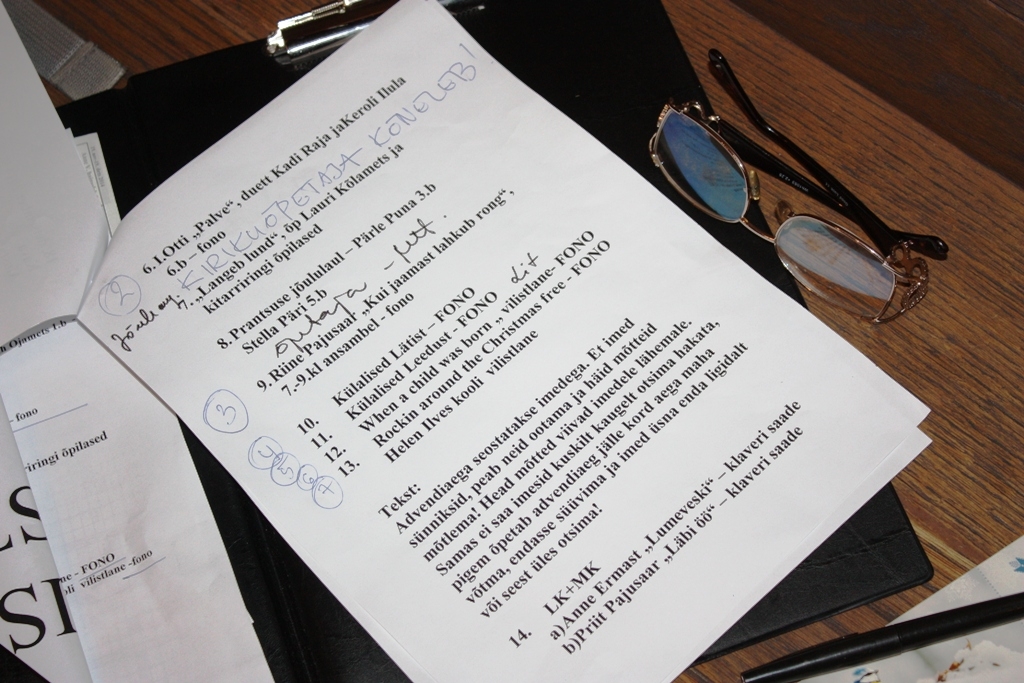 6. I.Otti „Palve“, duett Kadi Raja jaKeroli Ilula
6.b – fono
KIRIKUÕPETAJA KÕNELEB!
7. „Langeb lund“, õp Lauri Kõlamets ja
kitarriringi õpilased
8. Prantsuse jõulutaul – Pärle Puna 3.b
Stella Päri 5.b
9. Riine Pajusaar „Kui jaamast lahkub rong“,
7.-9.kl ansambel - fono
10. Külalised Lätist – FONO
11. Külalised Leedust - FONO
12. When a child was born „ vilistlane- FONO
13. Rockin around the Christmas free - FONO
Helen Ilves kooli vilistlane
2
3
4
5
6
7
Tekst:
Advendiaega seostatakse imedega. Et imed
sünniksid, peab neid ootama ja häid mõtteid
mõtlema! Head mõtted viivad imedele lähemale.
Samas ei saa imesid kuskilt kaugelt otsima hakata,
pigem õpetab advendiaeg jälle kord aega maha
võtma, endasse süüvima ja imed üsna enda ligidalt
või seest üles otsima!
LK+MK
14. a)Anne Ermast „Lumeveski“ – klaveri saade
b)Priit Pajusaar „Läbi öö“ – klaveri saade
Ojamets 1.b
- fono
iringi õpilased
ne - FONO
oli vilistlane -fono